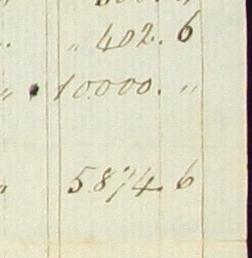 „ 402. 6
„ 10000. „
„ 5874. 6